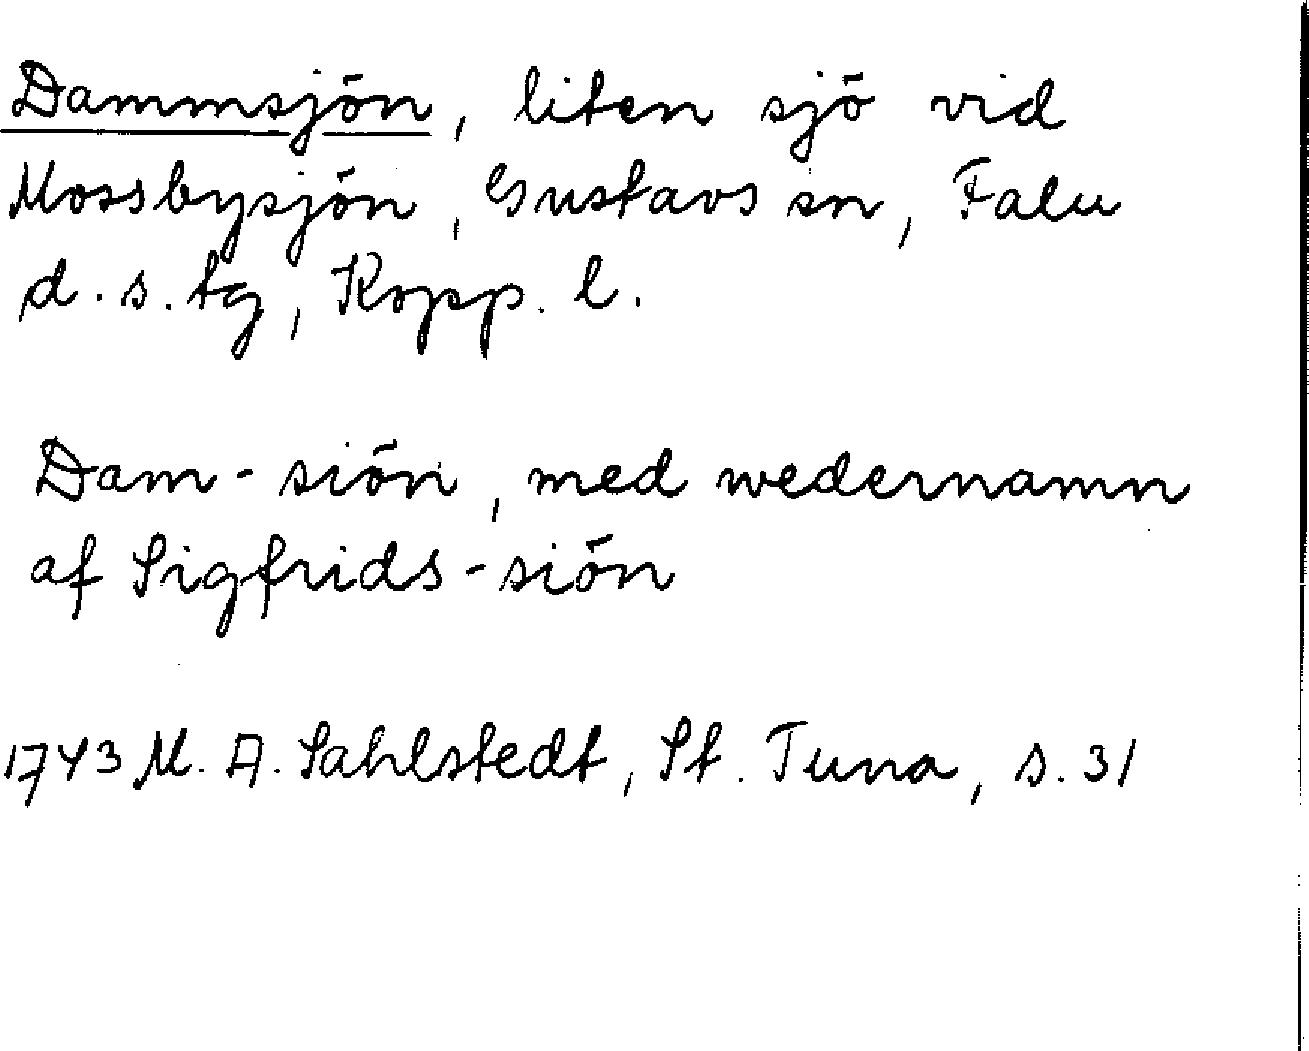 Dammsjön, liten sjö vid
Mossbysjön, Gustavs sn, Falu
d. s. tg, Kopp. l.
Dam-siön, med wedernamn
af Sigfrids-siön
1743 M. A. Sahlstedt, St. Tuna, s. 31